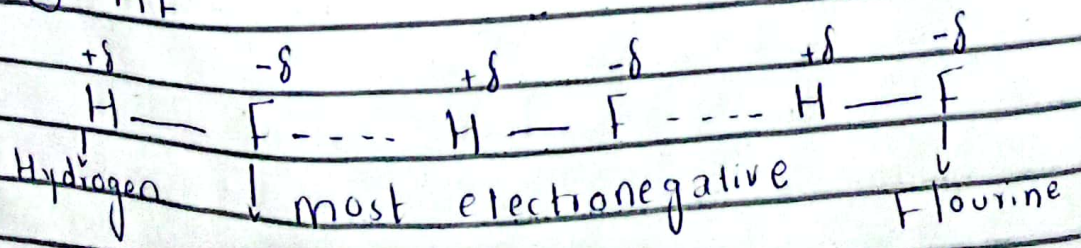 HF
+δ -δ +δ -δ +δ -δ
H — F ---- H — F ---- H — F
Hydrogen ↓ most electronegative Flourine